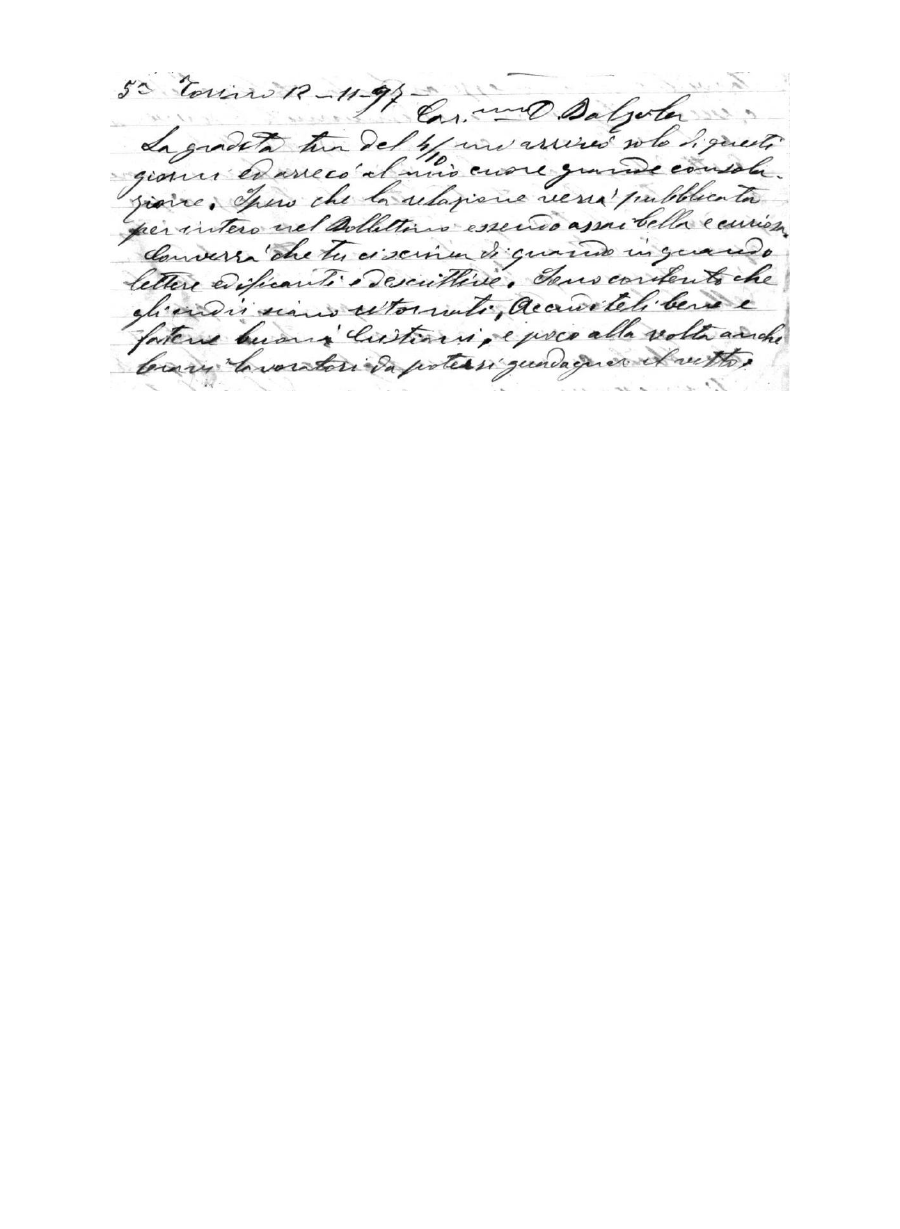 5ª Torino 12-11-97-
Car.mo D. Balzola
La gradita tua del 4/10 mi arrivò solo di questi
giorni ed arrecò al mio cuore grande consola-
zione. Spero che la relazione verrà pubblicata
per intero nel Bollettino essendo assai bella e curiosa.
Converrà che tu ci scriva di quando in quando
lettere edificanti e descrittive. Sono contento che
gli indii siano ritornati, Accudìteli bene e
fatene buoni Cristiani, e poco alla volta anche
bravi lavoratori da potersi guadagnar il vitto.